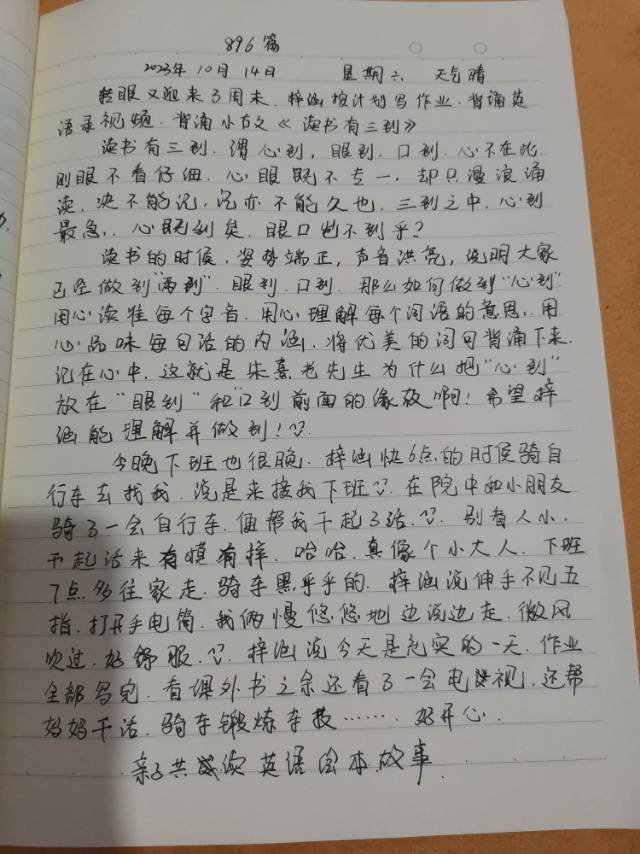 896篇
2023年10月14日 星期六 天气晴
转眼又迎来了周末. 梓涵按计划写作业. 背诵英
语录视频. 背诵小古文《读书有三到》
读书有三到. 谓心到, 眼到, 口到. 心不在此
则眼不看仔细. 心眼既不专一, 却只漫浪诵
读, 决不能记, 记亦不能久也, 三到之中, 心到
最急., 心既到矣, 眼口岂不到乎?
读书的时候, 姿势端正, 声音洪亮, 说明大家
已经做到"两到". 眼到. 口到. 那么如何做到"心到"
用心读准每个字音, 用心理解每个词语的意思, 用
心品味每句话的内涵, 将优美的词句背诵下来.
记在心中, 这就是朱熹老先生为什么把"心到"
放在"眼到"和"口到前面的缘故啊! 希望梓
涵能理解并做到!
今晚下班也很晚. 梓涵快6点的时候骑自
行车去找我. 说是来接我下班. 在院中和小朋友
骑了一会自行车, 便帮我干起了活. 别看人小.
干起活来有模有样. 哈哈. 真像个小大人. 下班
7点多往家走. 骑车黑乎乎的. 梓涵说伸手不见五
指. 打开手电筒. 我俩慢悠悠地边说边走. 微风
吹过. 好舒服. 梓涵说今天是充实的一天. 作业
全部写完. 看课外书之余还看了一会电视. 还帮
妈妈干活. 骑车锻炼车技…… 好开心.
亲子共读英语绘本故事.